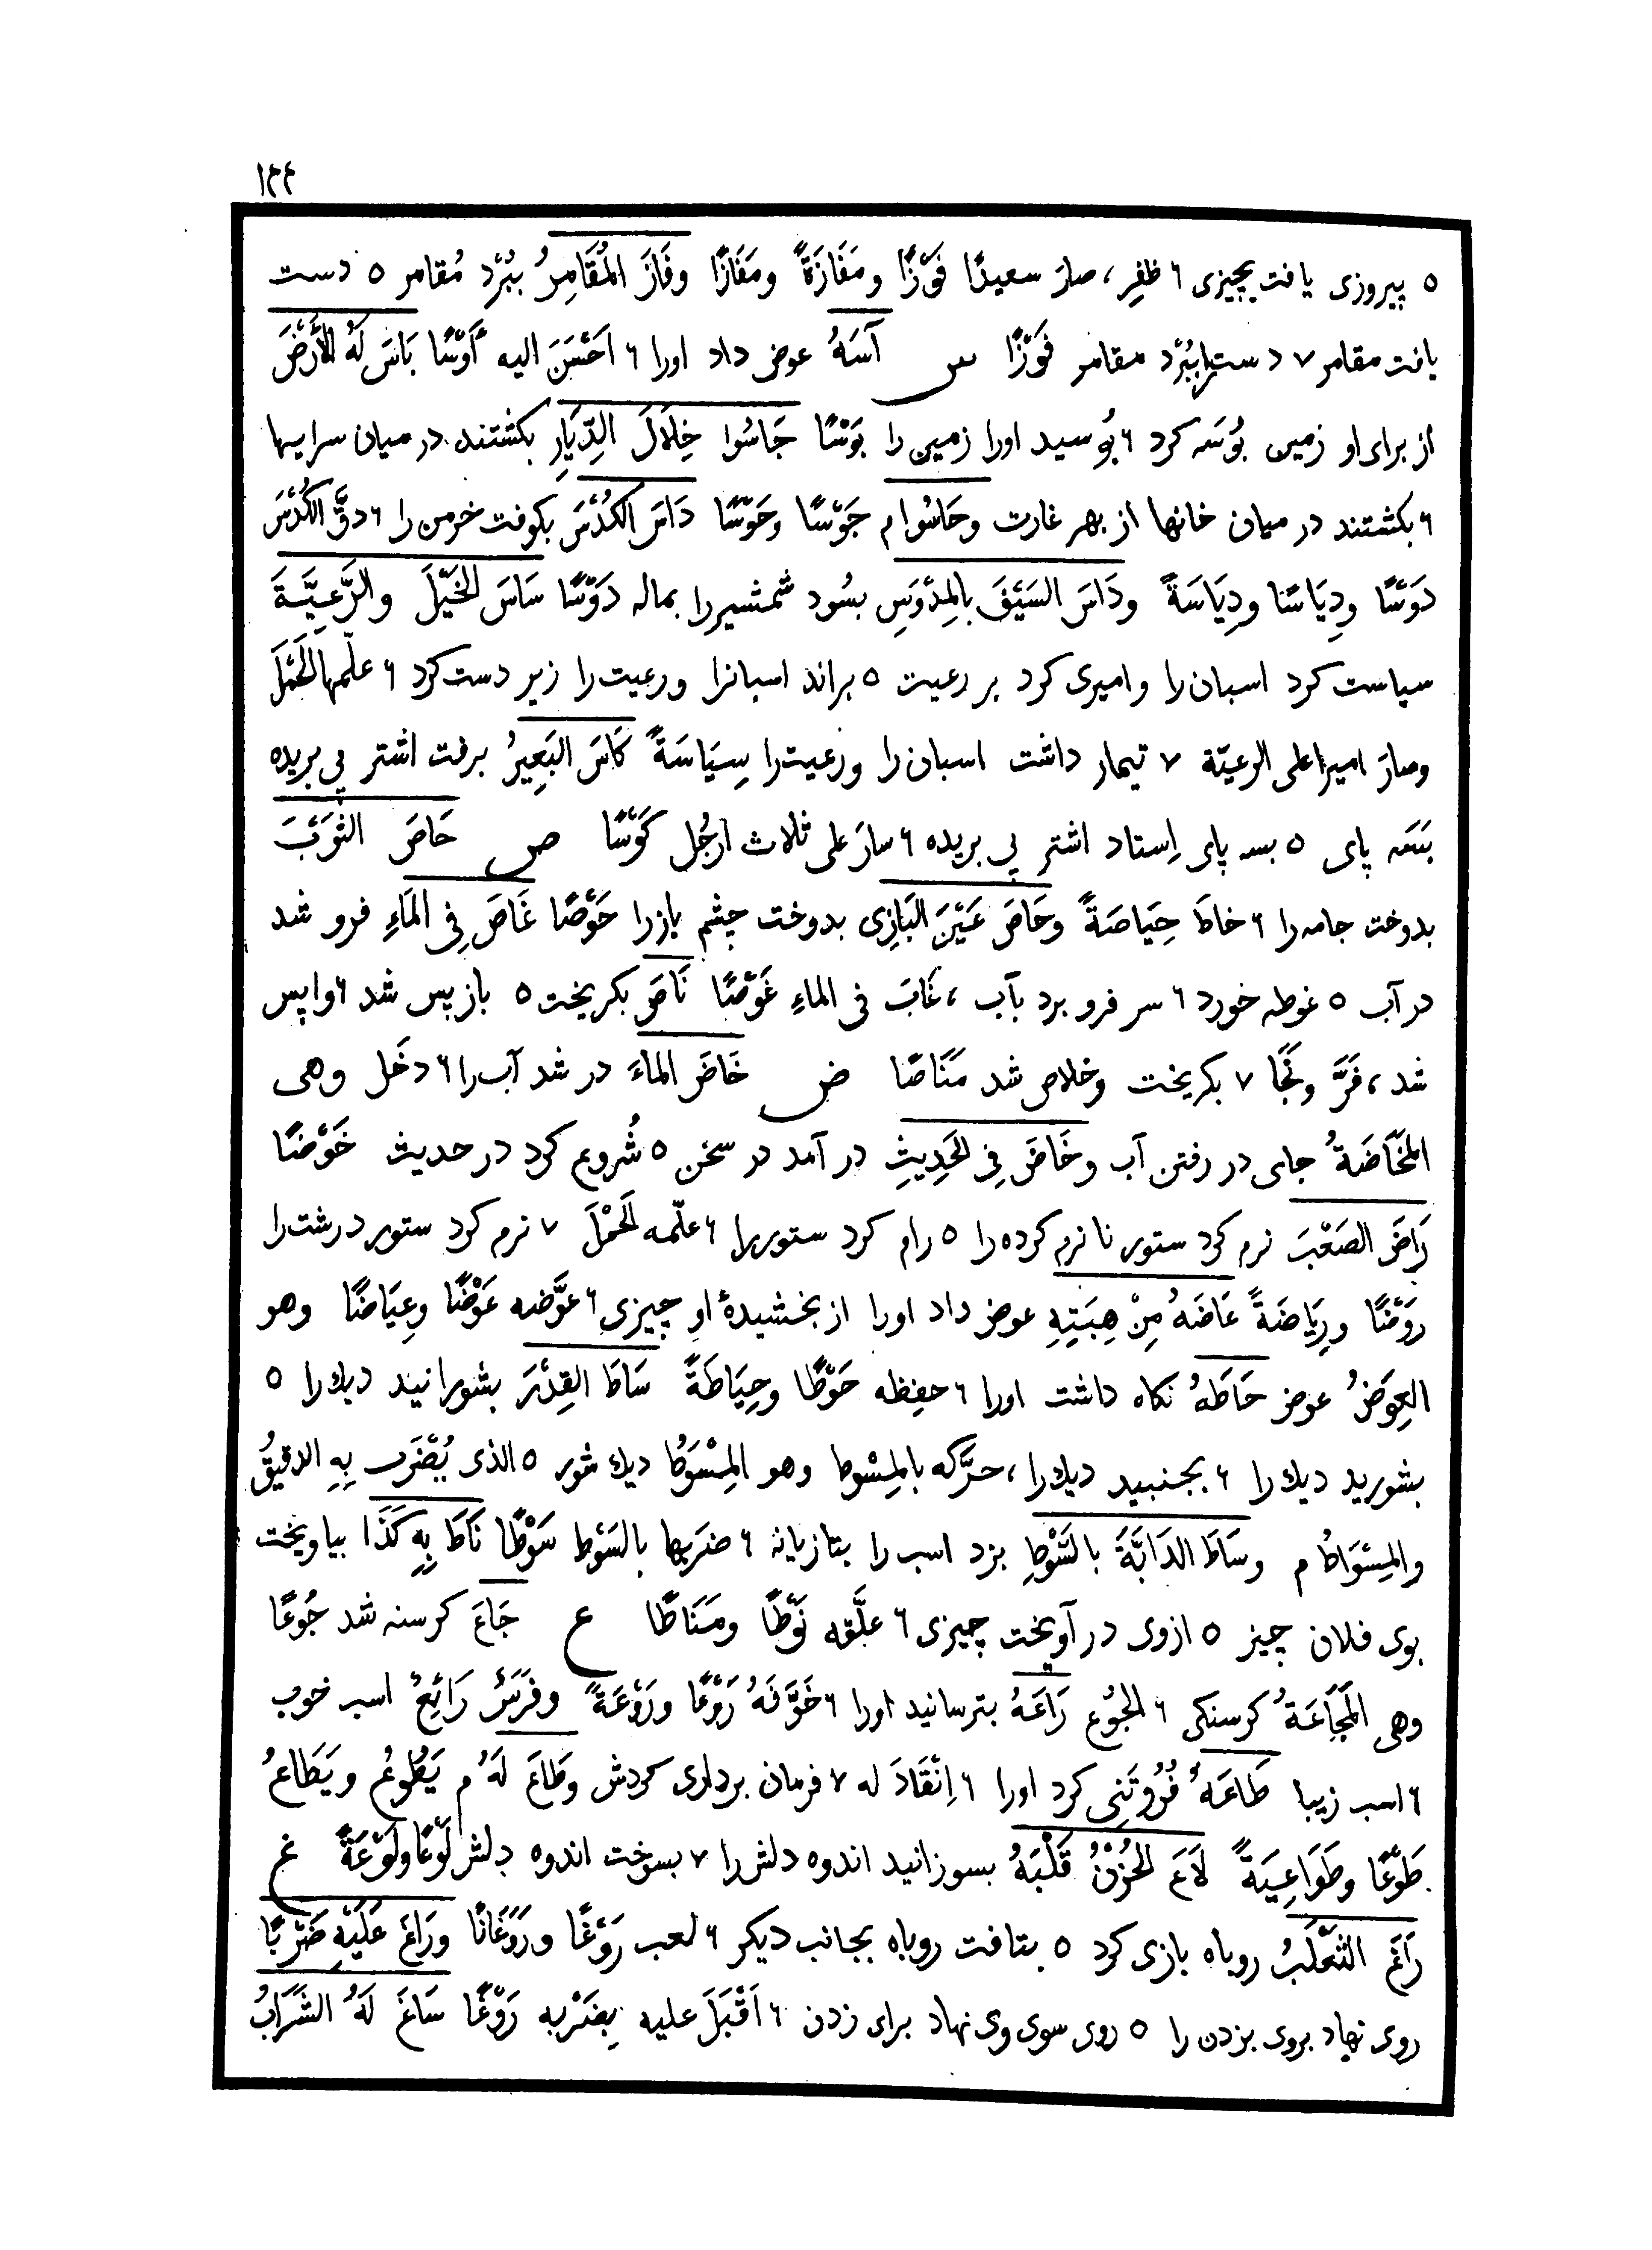 ١٤٤
٥ پیروزی یافت بچیزی ٦ ظفِر، صارَ سعیدًا فَوْزًا ومَفَازَةً ومَفَازًا وفَازَ المُقَامِرُ ببُرْد مُقامر ٥ دست
یافت مقامر ٧ دست را ببُرْد مقامر فَوْزًا س آسَهُ عوض داد اورا ٦ اَحْسَنَ الیه أَوْسًا بَاسَ لَهُ الأَرْضَ
از برای او زمین بوُسَه کرد ٦ بوُسید اورا زمین را بَوْسًا جَاسُوا خِلَالَ الدِّیَارِ بکشتند در میان سرایها
٦ بکشتند در میان خانها از بهر غارت وحَاسُوا م جَوْسًا وحَوْسًا دَاسَ الکُدْسَ بکوفت خرمن را ٦ دقَّ الکُدْسَ
دَوْسًا ودِیَاسًا ودِیَاسَةً ودَاسَ السَیْفَ بالمِدْوَسِ بسُود شمشیر را بماله دَوْسًا سَاسَ الخَیْلَ والرَّعِیَّةَ
سیاست کرد اسبان را و امیری کرد بر رعیت ٥ براند اسبانرا ورعیت را زیر دست کرد ٦ علّمها الحَمْلَ
وصارَ امیرا علی الرعیّة ٧ تیمار داشت اسبان را ورعیت را سِیَاسَةً کَاسَ البَعِیرُ برفت اشتر پی بریده
بسَه پای ٥ بسه پای اِستاد اشتر پی بریده ٦ سارَ علی ثلاث ارجُل کَوْسًا ص حَاصَ الثَوْبَ
بدوخت جامه را ٦ خاطَ حِیَاصَةً وحَاصَ عَیْنَ البَازِی بدوخت چشم باز را حَوْصًا غَاصَ فِی المَاءِ فرو شد
در آب ٥ غوطه خورد ٦ سر فرو برد بآب، غَابَ فی الماءِ غَوْصًا نَاصَ بکریخت ٥ باز پس شد ٦ واپس
شد، فَرَّ ونَجَا ٧ بکریخت وخلاص شد مَنَاصًا ض خَاضَ الماءَ در شد آب را ٦ دخَل وهی
المَخَاضَةُ جای در رفتن آب وخَاضَ فِی الحَدِیثِ در آمد در سخن ٥ شُروع کرد در حدیث خَوْضًا
رَاضَ الصَعْبَ نرم کرد ستور نا نرم کرده را ٥ رام کرد ستور را ٦ علّمه الحَمْلَ ٧ نرم کرد ستور درشت را
رَوْضًا ورِیَاضَةً عَاضَهُ مِنْ هِبَتِهِ عوض داد اورا از بخشیدهٔ او چیزی ٦ عوَّضه عَوْضًا وعِیَاضًا وهو
العِوَضُ عوض حَاطَهُ نکاه داشت اورا ٦ حفِظه حَوْطًا وحِیَاطَةً سَاطَ القِدْرَ بشورانید دیك را ٥
بشورید دیك را ٦ بجنبید دیك را، حرَّکه بالمِسْوط وهو المِسْوَطُ دیك شور ٥ الذی یُضْرَب بِهِ الدقیقُ
والمِسْوَاطُ م وسَاطَ الدَابَّةَ بالسَّوْطِ بزد اسب را بتازیانه ٦ ضرَبها بالسَوْط سَوْطًا نَاطَ بِهِ کَذَا بیاویخت
بوی فلان چیز ٥ ازوی در آویخت چیزی ٦ علَّقه نَوْطًا ومَنَاطًا ع جَاعَ کرسنه شد جُوعًا
وهی المَجَاعَةُ کرسنکی ٦ الجُوع رَاعَهُ بترسانید اورا ٦ خَوَّفَهُ رَوْعًا ورَوْعَةً وفَرَسٌ رَائِعٌ اسب خوب
٦ اسب زیبا طَاعَهُ فُرُوتَنِی کرد اورا ٦ اِنْقَادَ له ٧ فرمان برداری کردش وطَاعَ لَهُ م یَطُوعُ ویَطَاعُ
طَوْعًا وطَوَاعِیَةً لَاعَ الحُزْنُ قَلْبَهُ بسوزانید اندوه دلش را ٧ بسوخت اندوه دلش لَوْعًا ولَوْعَةً غ
رَاغَ الثَعْلَبُ روباه بازی کرد ٥ بتافت روباه بجانب دیکر ٦ لعب رَوْغًا ورَوَغَانًا ورَاغَ عَلَیْهِ ضَرْبًا
روی نهاد بروی بزدن را ٥ روی سوی وی نهاد برای زدن ٦ اَقْبَلَ علیه بِضَرْبه رَوْغًا سَاغَ لَهُ الشَرَابُ